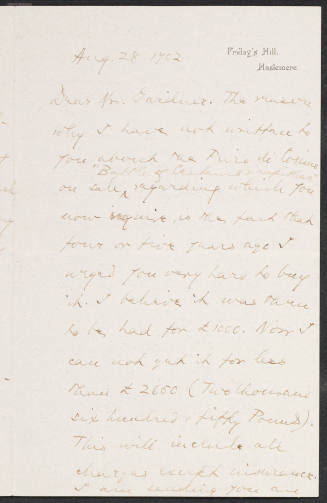 Friday's Hill.
Haslemere.
Aug 28 1902
Dear Mrs. Gardner. The reason
why I have not written to
you about the Piero di Cosimo
"Battle of Centaurs & Lapithae"
on sale, regarding which you
now inquire, is the fact that
four or five years ago I
urged you very hard to buy
it. I believe it was then
to be had for £1000. Now I
can not get it for less
than £2650 (Two thousand
six hundred & fifty Pounds).
This will include all
charges except insurance.
I am sending you an